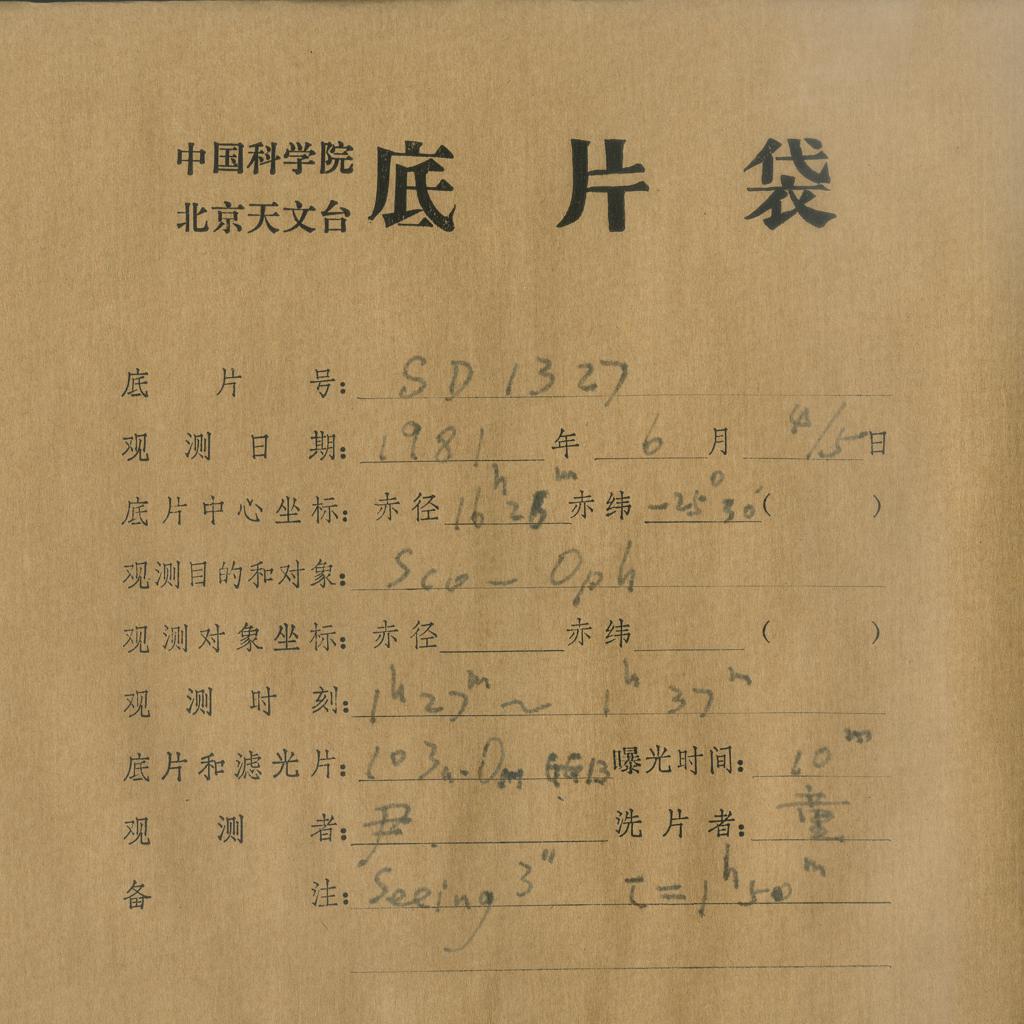 中国科学院
北京天文台
底片袋
底片号: SD 1327
观测日期: 1981 年 6 月 4/5 日
底片中心坐标: 赤径 16h 26m 赤纬 -25° 30′ ( )
观测目的和对象: Sco - Oph
观测对象坐标: 赤径 赤纬 ( )
观测时刻: 1h 27m ~ 1h 37m
底片和滤光片: 曝光时间: 10m
观测者: 尹 洗片者: 童
备注: Seeing 3″ τ = 1h 50m